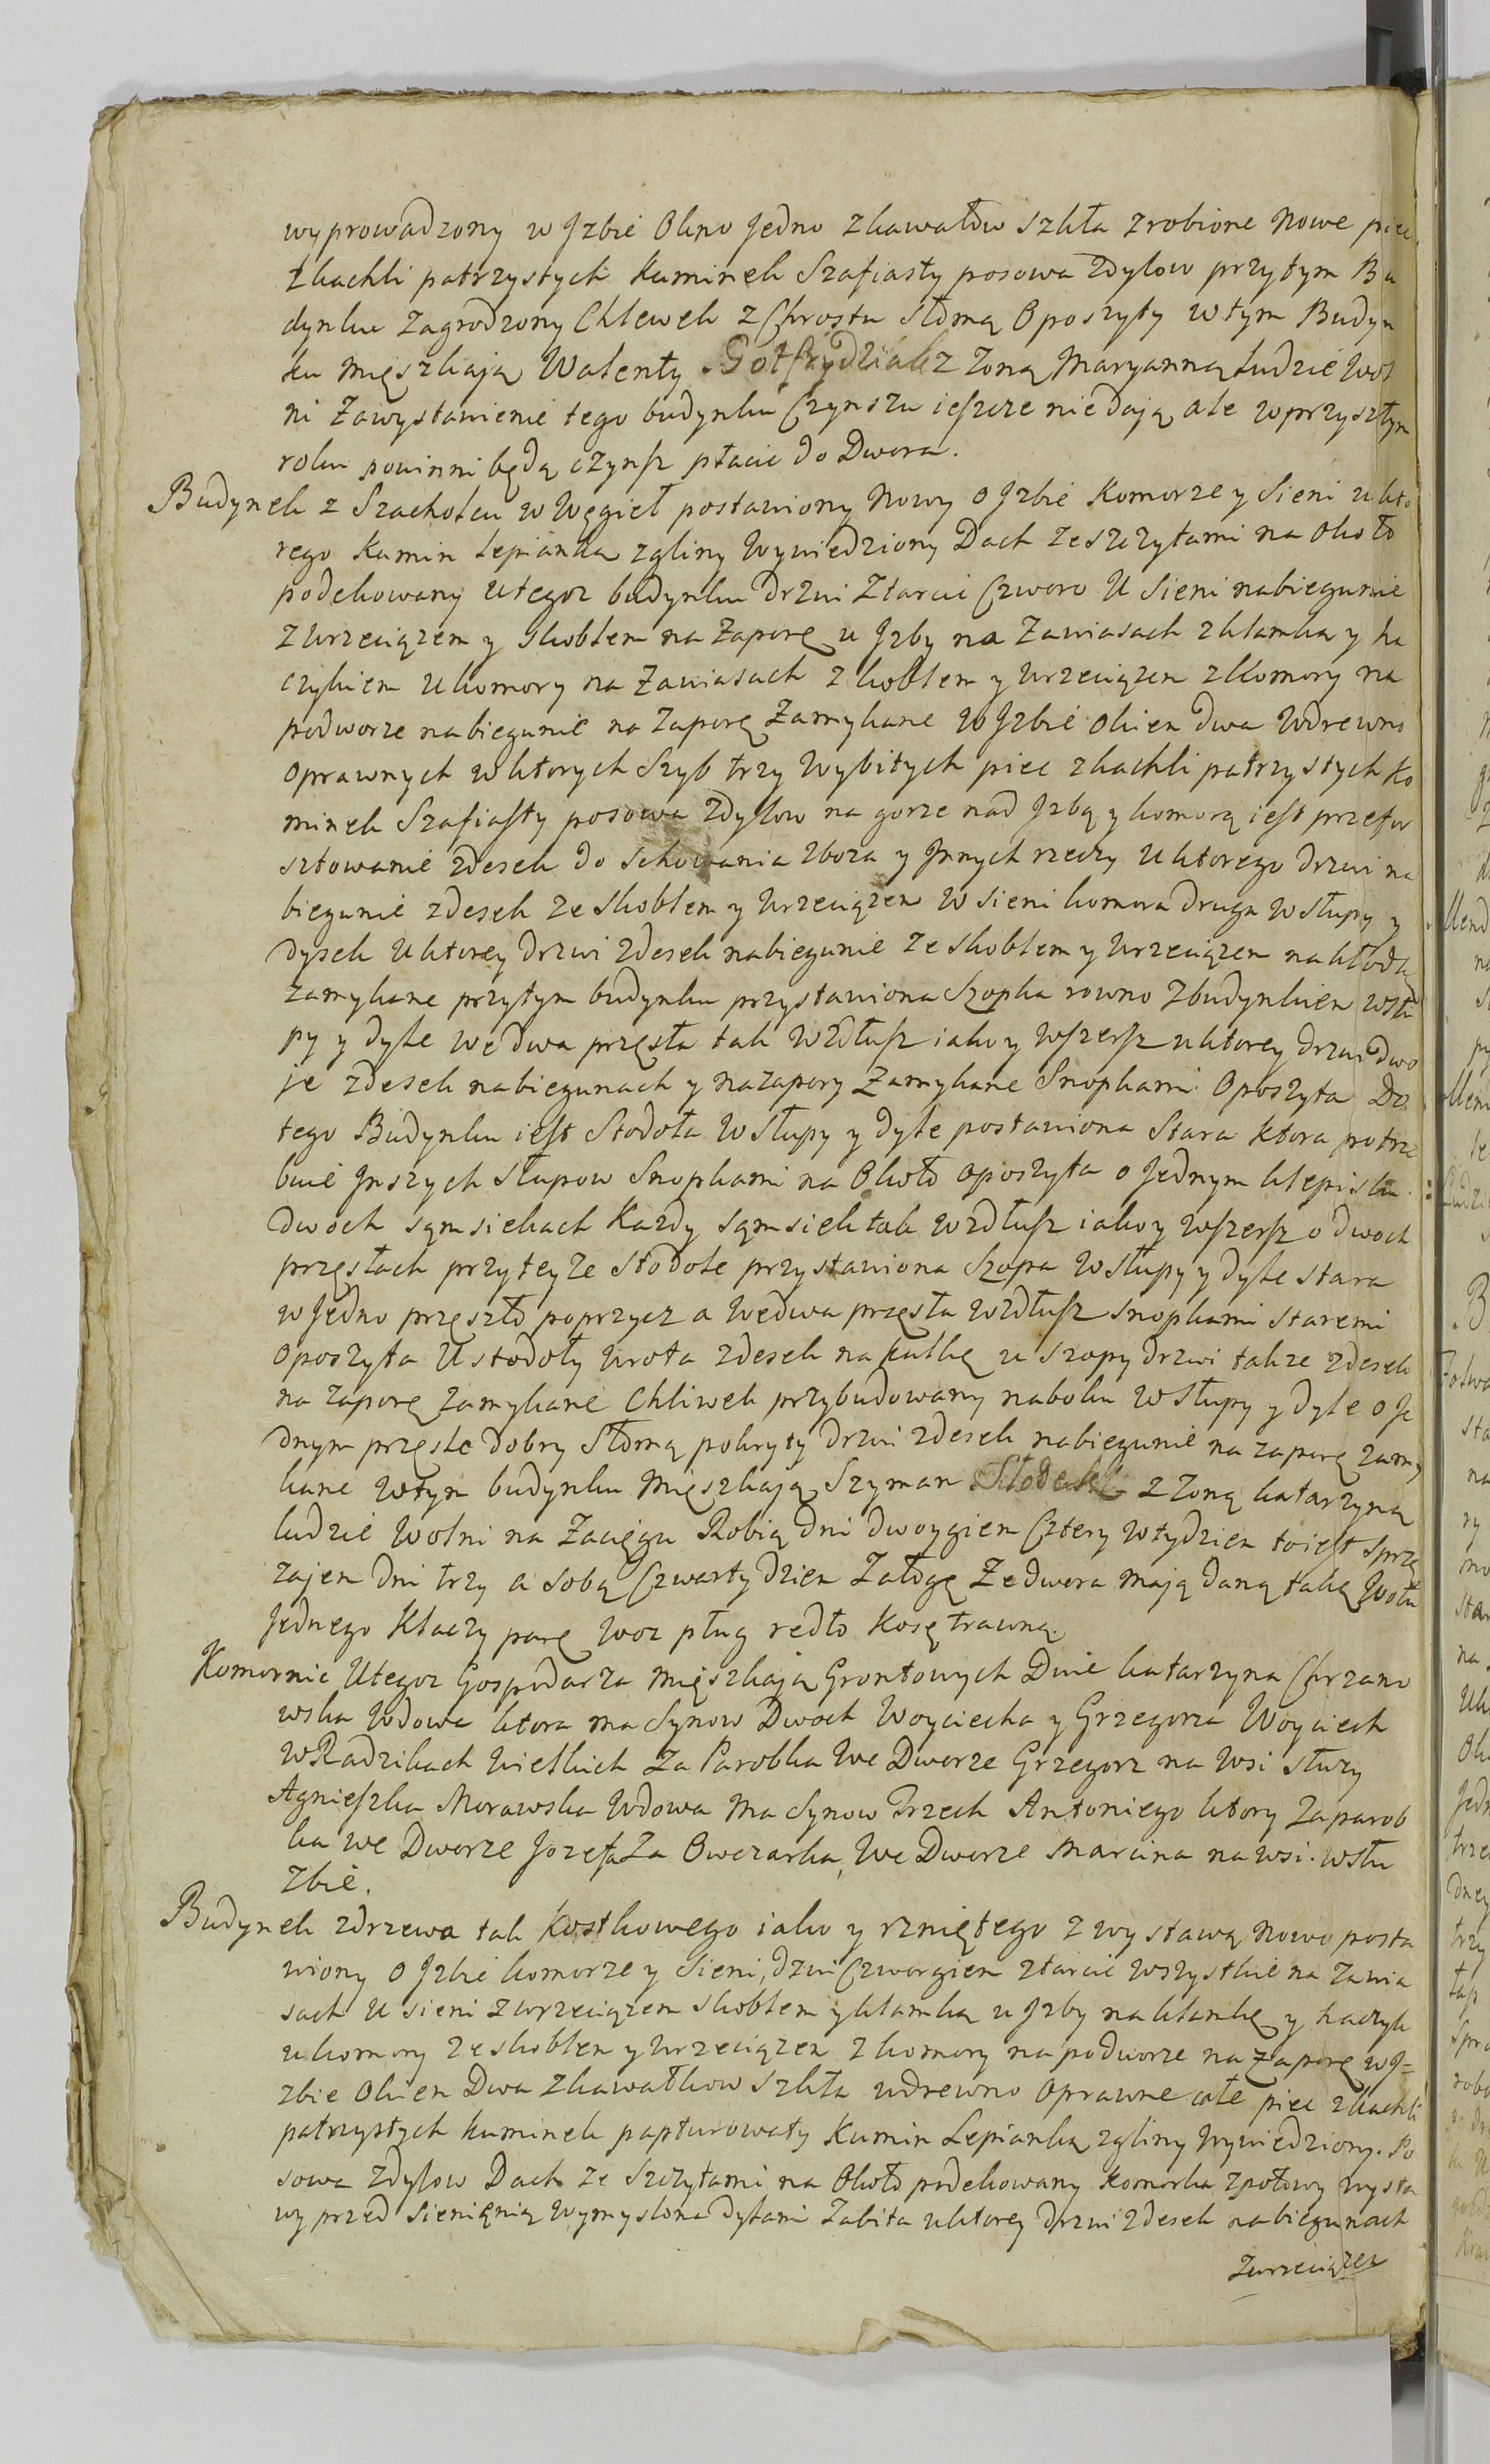 wyprowadzony w Jzbie Okno Jedno z kawałow szkła zrobione Nowe piec
z kachli patrzystych Kuminek Szafiasty posowa zdylow przytym Bu
dynku zagrodzony Chlewek z Chrostu słomą Oposzyty wtym Budyn
ku mięszkaią Walenty Gotfrydziak z Zoną Maryanną Ludzie wol
ni Zawystawienie tego budynku Czynszu ieszcze niedaią ale wprzyszłym
roku powinni będą czynsz płacic do Dwora.
Budynek z Szachulcu w Węgieł postawiony Nowy o Jzbie Komorze y Sieni u kto
rego Kumin Lepianka zgliny Wywiedziony Dach ze szczytami na około
podekowany utegoz budynku drzwi Ztarcic Czworo U sieni nabiegunie
Zwrzeciązem y skoblem na Zaporę u Jzby na Zawiasach zklamką y ha
czykiem Ukomory na zawiasach zkoblem y wrzeciązem zKomory na
podworze nabiegunie na Zaporę Zamykane W Jzbie okien dwa Wdrewno
oprawnych wktorych Szyb trzy Wybitych piec zkachli patrzystych Ko
minek Szafiasty posowa zdylow na gorze nad Jzbą y komorą iest przefor
sztowanie zdesek do schowania zboza y Jnnych rzeczy Uktorego drzwi na
biegunie zdesek ze skoblem y wrzeciązem w sieni komora druga wsłupy y
dysek uktorey drzwi zdesek nabiegunie ze skoblem y wrzeciązem nakłodą
zamykane przytym budynku przystawiona Szopka rowno Zbudynkiem wsłu
py y dyle we dwa przęsła tak Wzdłusz iako y wszersz uktorey drzwi dwo
je zdesek nabiegunach y nazapory Zamykane Snopkami Oposzyta Do
tego Budynku iest Stodoła W Słupy y dyle postawiona Stara Ktora potrze
buie Jnszych słupow Snopkami na Około oposzyta o Jednym klepisku
dwoch sąmsiekach Kazdy sąmsiek tak wzdłusz iako y wszersz o dwoch
przęsłach przyteyze stodole przystawiona Szopa Wsłupy y dyle stara
w Jedno przęszło poprzycz a Wedwa przęsła Wzdłusz snopkami staremi
oposzyta U stodoły Wrota zdesek na kulkę u szopy drzwi takze zdesek
na zaporę zamykane Chliwek przybudowany naboku W słupy y dyle o Je
dnym przęsle dobry słomą pokryty drzwi zdesek nabiegunie na zaporę zamy
kane wtym budynku Mięszkaią Szyman Słodeski z Zoną katarzyną
ludzie Wolni na Zaciągu Robią dni dwoygiem Cztery wtydzien toiest sprzę
zajem dni trzy a sobą Czwarty dzien Załogę Zedwora maią daną taką Wołu
Jednego Klaczy parę woz pług redło Kosę trawną.
Komornic Utegoz Gospodarza mięszkaią Grontowych Dwie katarzyna Chrzano
wska Wdowa ktora ma Synow Dwoch Woyciecha y Grzegorza Woyciech
wRadzikach Wielkich Za Parobka We Dworze Grzegorz na Wsi słuzy
Agnieszka Morawska Wdowa Ma Synow Trzech Antoniego ktory Zaparob
ka we Dworze Jozefa Za Owczarka We Dworze Marcina na wsi. wsłu
zbie.
Budynek zdrzewa tak Kostkowego iako y rzniętego z wystawą Nowo posta
wiony o Jzbie komorze y Sieni, dzwi Czworgiem ztarcic wszystkie na Zawia
sach u sieni zwrzeciązem skoblem y klamką u Jzby na klamkę y haczyk
ukomory ze skoblem y wrzeciązem z komory na podworze na zaporę w J=
zbie Okien Dwa zkawałkow szkła wdrewno oprawne całe piec zkachli
patrzystych kuminek papturowaty Kumin Lepianka zgliny Wywiedziony. Po
sowa zdylow Dach ze szczytami na Około podekowany Komorka zpołowy wysta
wy przed sieniąnią Wymyslona dylami Zabita uktorey drzwi zdesek nabiegunach
Zwrzeciązem